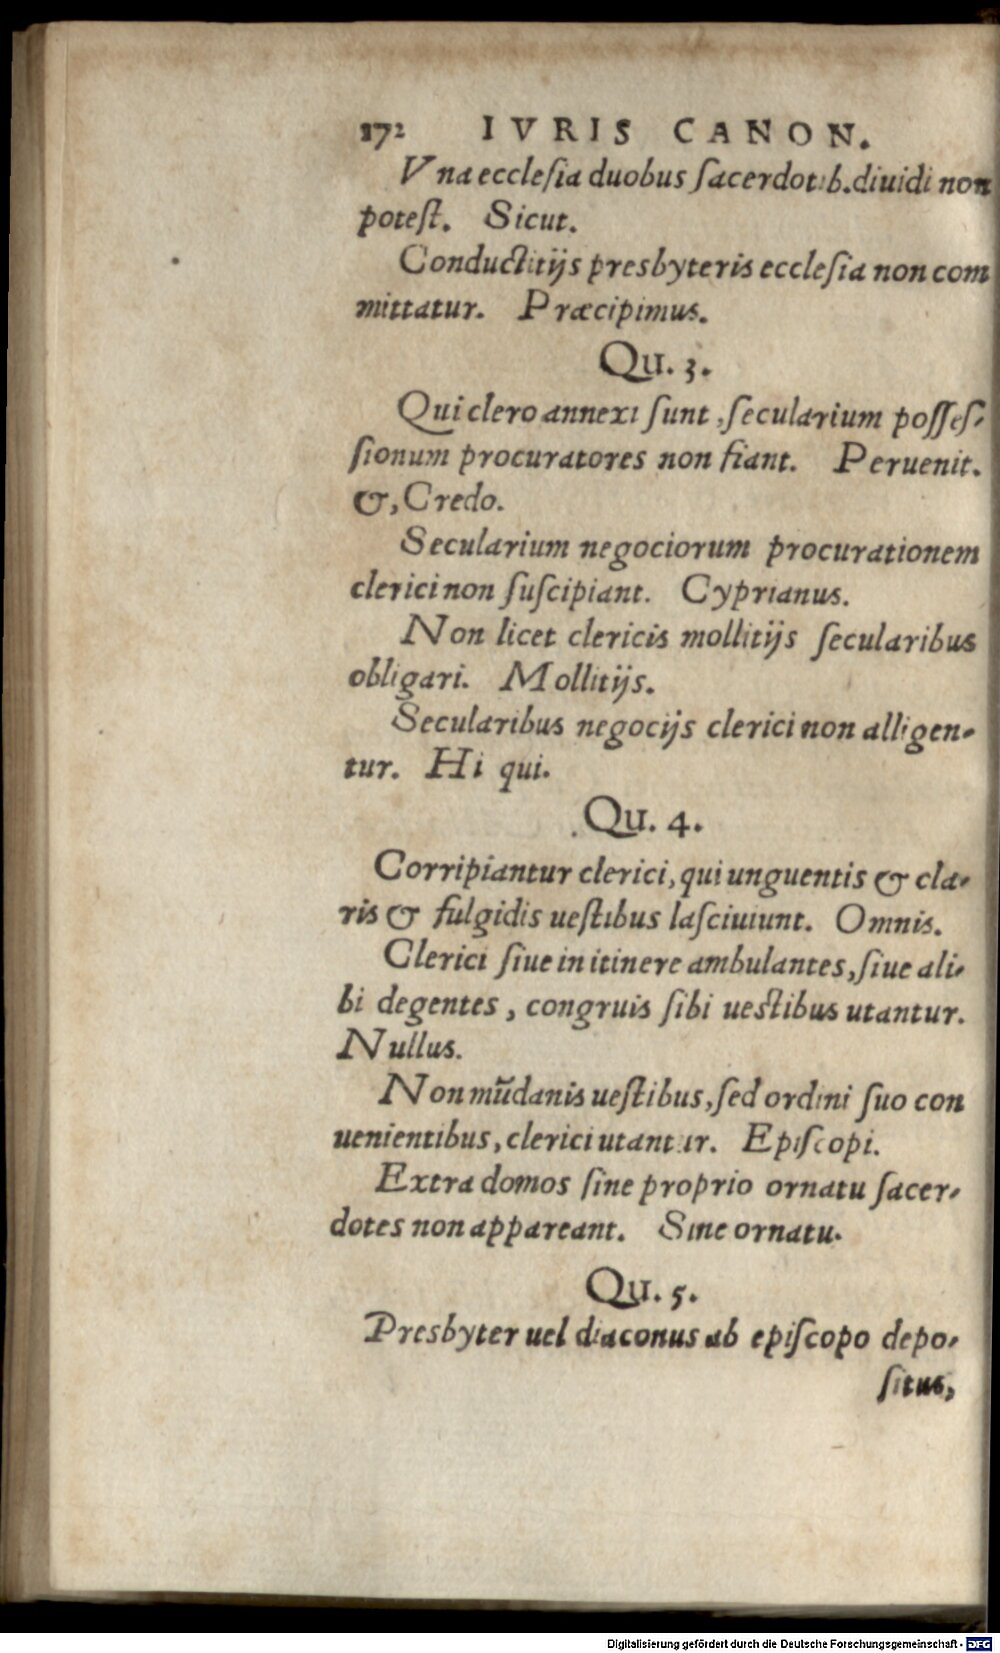 172 IVRIS CANON.
Vna ecclesia duobus sacerdotib. diuidi non
potest. Sicut.
Conductitijs presbyteris ecclesia non com
mittatur. Præcipimus.
Qu. 3.
Qui clero annexi sunt, secularium posses-
sionum procuratores non fiant. Peruenit.
&, Credo.
Secularium negociorum procurationem
clerici non suscipiant. Cyprianus.
Non licet clericis mollitijs secularibus
obligari. Mollitijs.
Secularibus negocijs clerici non alligen-
tur. Hi qui.
Qu. 4.
Corripiantur clerici, qui unguentis & cla-
ris & fulgidis uestibus lasciuiunt. Omnis.
Clerici siue in itinere ambulantes, siue ali-
bi degentes, congruis sibi uestibus utantur.
Nullus.
Non mũdanis uestibus, sed ordini suo con
uenientibus, clerici utantur. Episcopi.
Extra domos sine proprio ornatu sacer-
dotes non appareant. Sine ornatu.
Qu. 5.
Presbyter uel diaconus ab episcopo depo-
situs,
Digitalisierung gefördert durch die Deutsche Forschungsgemeinschaft - DFG